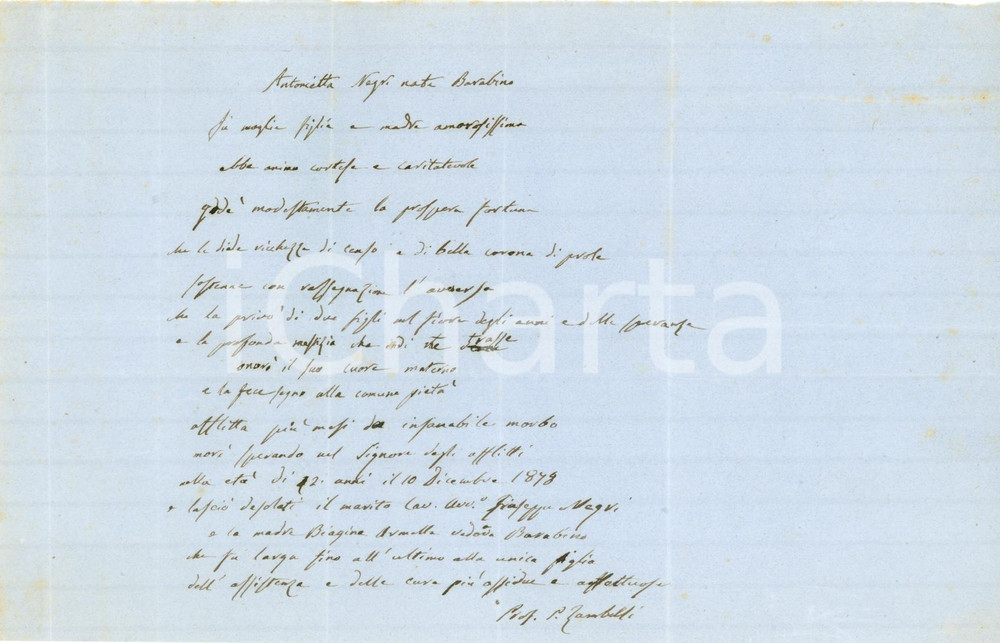 Antonietta Negri nata Barabino
fu moglie figlia e madre amorosissima
ebbe animo cortese e caritatevole
godè modestamente la prospera fortuna
che le diede ricchezza di censo e di bella corona di prole
sostenne con rassegnazione l'avversa
che la privò di due figli nel fiore degli anni e delle speranze
e la profonda mestizia che indi ne trasse
onorò il suo cuore materno
e la fece segno alla comune pietà
afflitta più mesi da insanabile morbo
morì sperando nel Signore degli afflitti
alla età di 42 anni il 10 Dicembre 1873
lasciò desolati il marito Cav. Avv.º Giuseppe Negri
e la madre Biagina Armella vedova Barabino
che fu larga fino all'ultimo alla unica figlia
dell'assistenza e delle cure più assidue e affettuose
Prof. P. Zambelli
iCharta